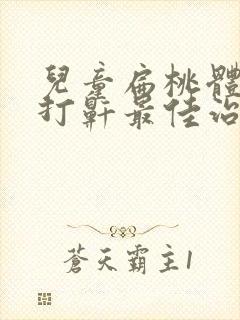 兒童扁桃體
打鼾最佳治
蒼天霸主1